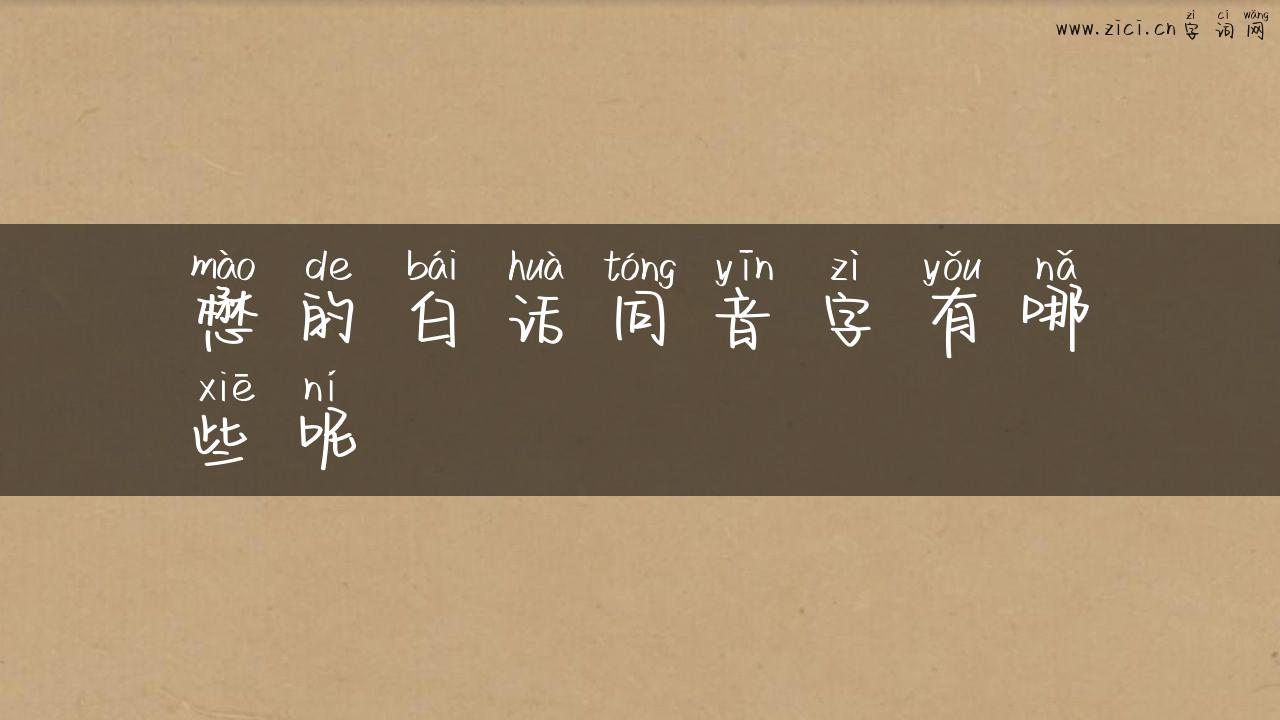 zì cí wǎng
www.zici.cn 字词网
mào de bái huà tóng yīn zì yǒu nǎ
懋的白话同音字有哪
xiē ní
些呢